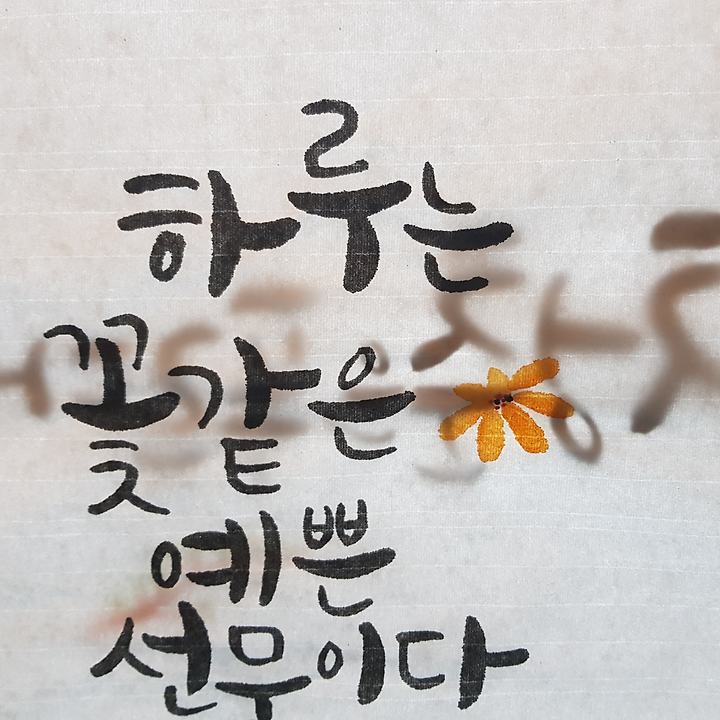 하루는
꽃같은
예쁜
선물이다